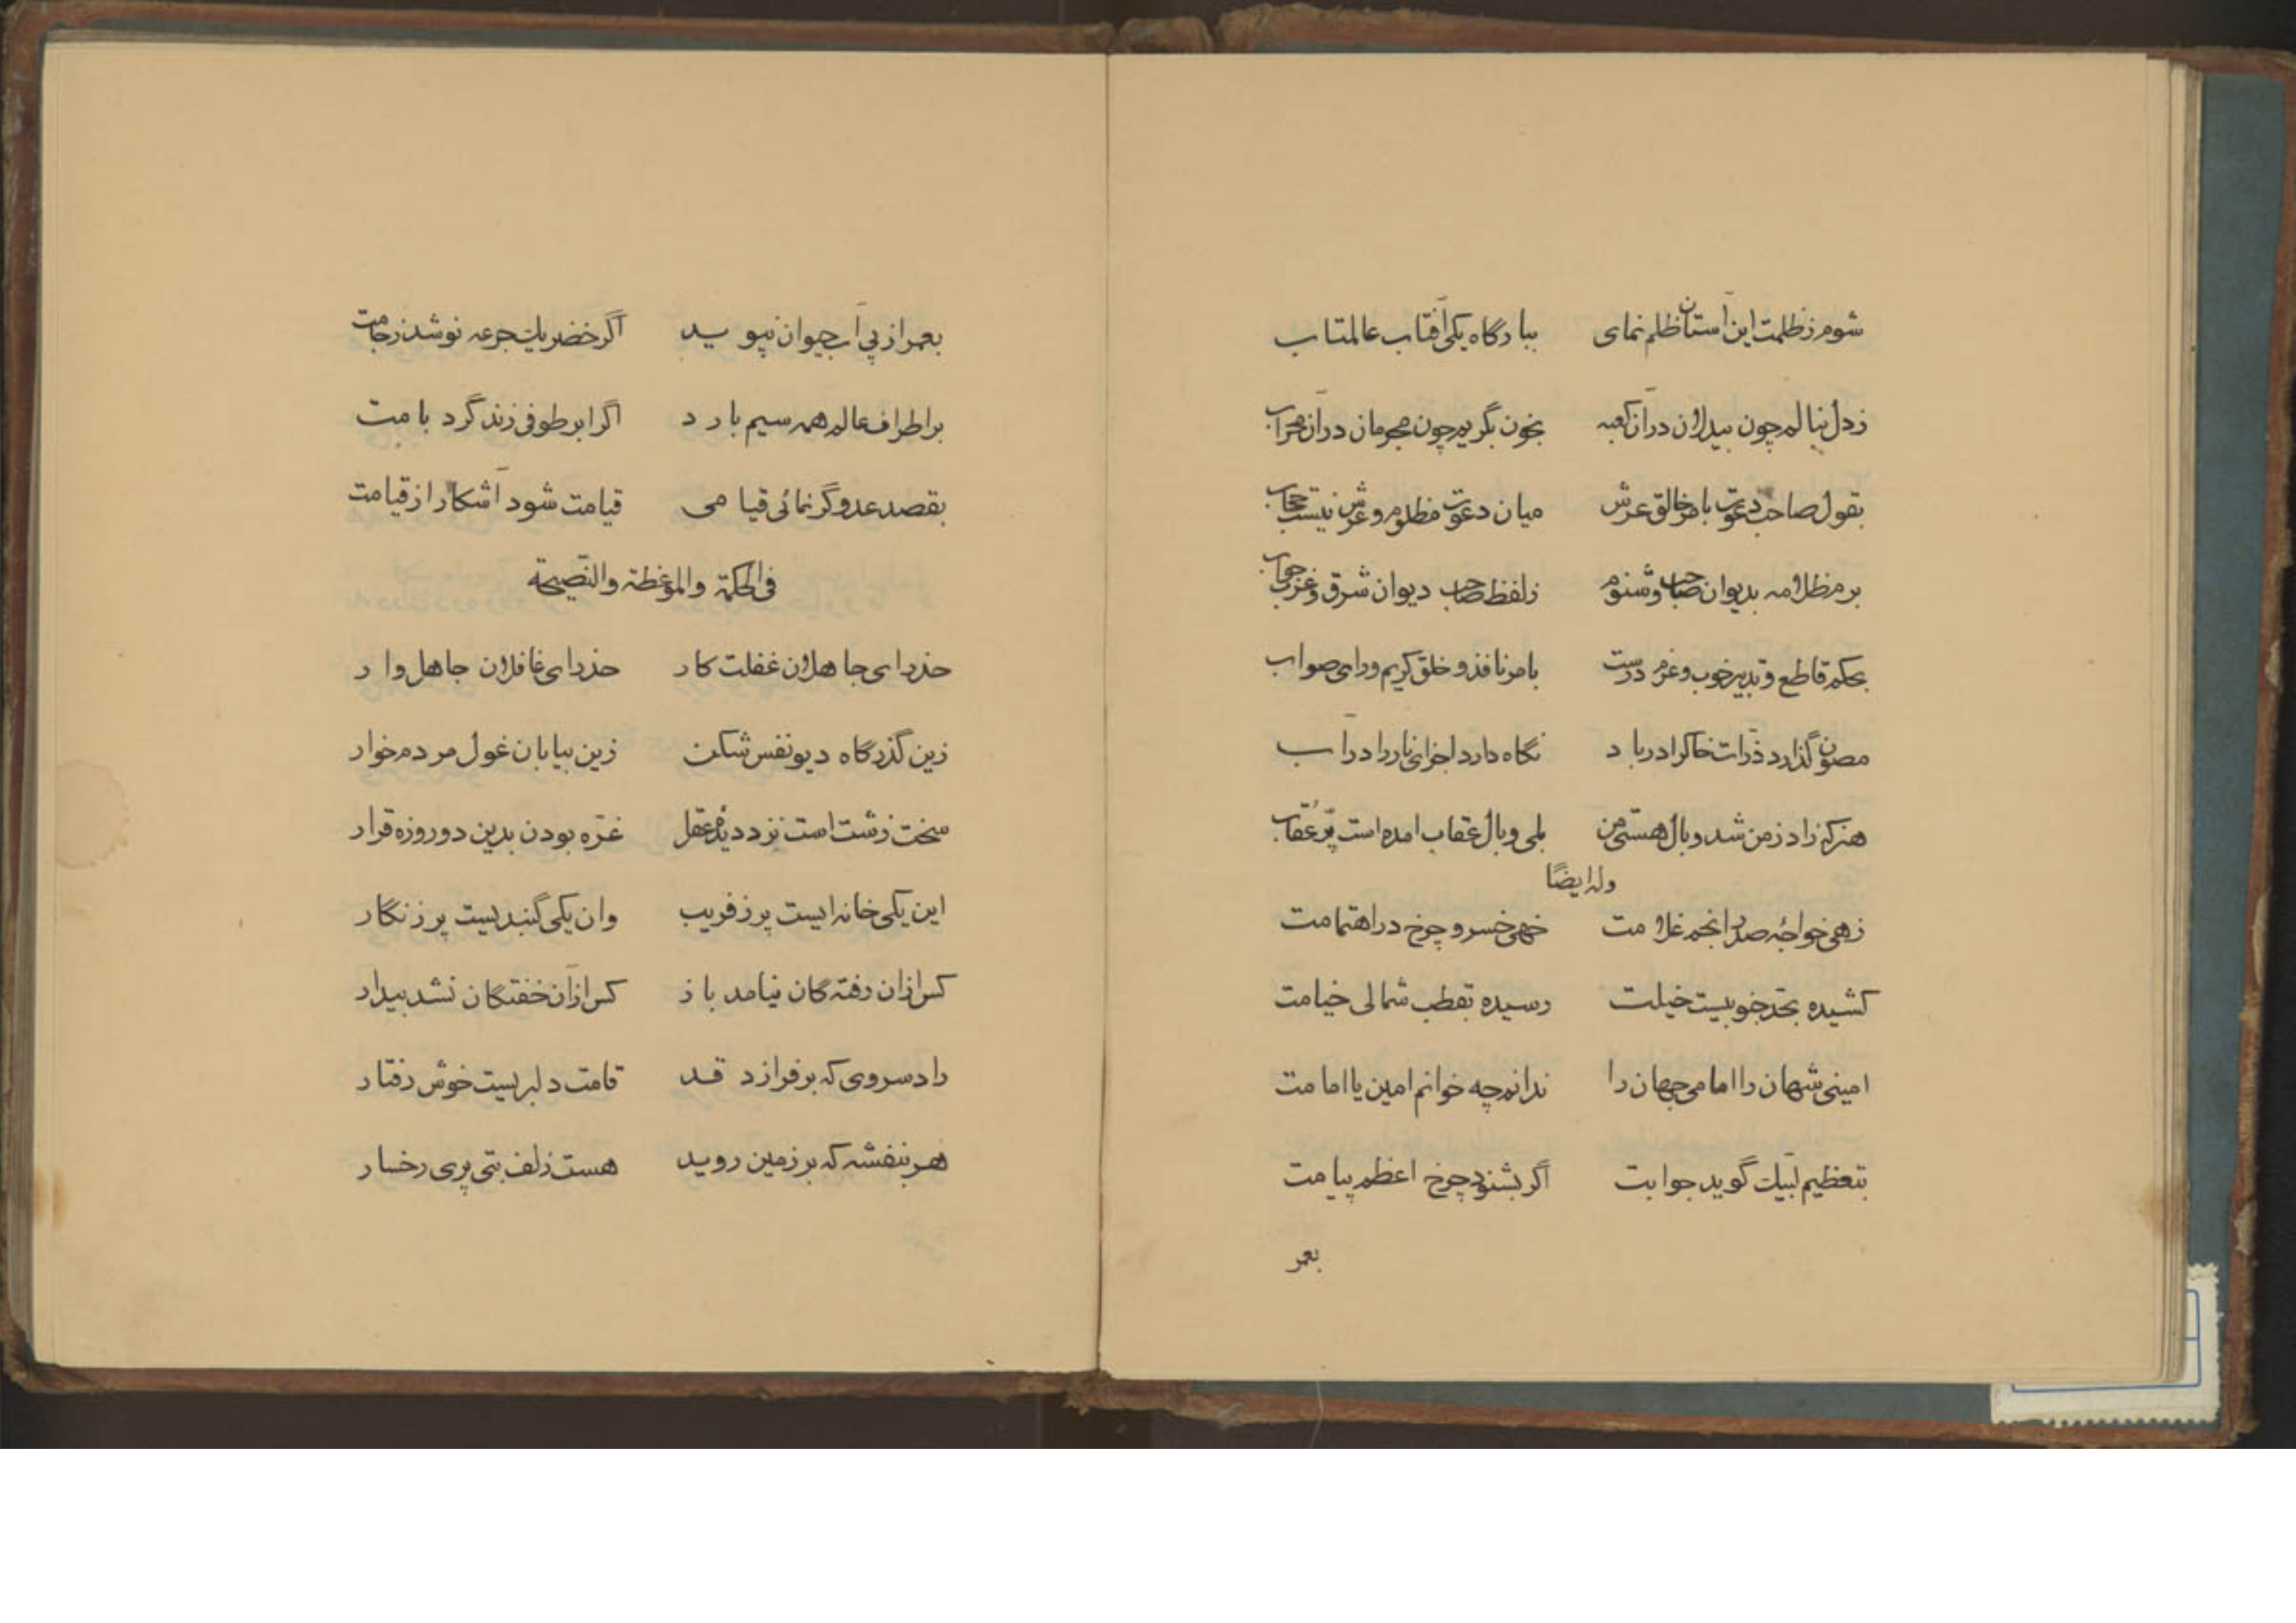 شوم ز ظلمت این آستان ظلم نمای ببارگاه یکی آفتاب عالمتاب
ز دل بنالم چون بیدلان در آن کعبه بخون بگریم چون مجرمان در آن محراب
بقول صاحب دعوت بامر خالق عرش میان دعوت مظلوم و عرش نیست حجاب
برم ظلامه بدیوان صاحب و شنوم ز لفظ صاحب دیوان شرق و غرب جواب
بحکم قاطع و تدبیر خوب و عزم درست بامر نافذ و خلق کریم و رای صواب
مصون گذارد ذرّات خاکرا در باد نگاه دارد اجزای نار را در آب
هنر که زاد ز من شد وبال هستی من بلی وبال عقاب امده است پَرِّ عُقاب
وله ایضًا
زهی خواجهٔ صدر انجم غلامت خهی خسرو چرخ در اهتمامت
کشیده بحد جنوبیست خیلت رسیده بقطب شمالی خیامت
امینی شهان را امامی جهان را ندانم چه خوانم امین یا امامت
بتعظیم لبّیك گوید جوابت اگر بشنود چرخ اعظم پیامت
بعمر
بعمر از پی آب حیوان نپوید اگر خضر یك جرعه نوشد ز جامت
بر اطراف عالم همه سیم بارد اگر ابر طوفی زند گرد بامت
بقصد عدو گر نمائی قیامی قیامت شود آشکار از قیامت
فی الحکمة والموعظة والنّصیحة
حذر ای جاهلان غفلت کار حذر ای غافلان جاهل وار
زین گذرگاه دیو نفس شکن زین بیابان غول مردم خوار
سخت زشت است نزد دیدهٔ عقل غرّه بودن بدین دو روزه قرار
این یکی خانه ایست پر ز فریب وان یکی گنبدیست پر زنگار
کس ازان رفته گان نیامد باز کس ازآن خفتگان نشد بیدار
راد سروی که بر فرازد قد قامت دلبریست خوش رفتار
هر بنفشه که بر زمین روید هست زلف بتی پری رخسار